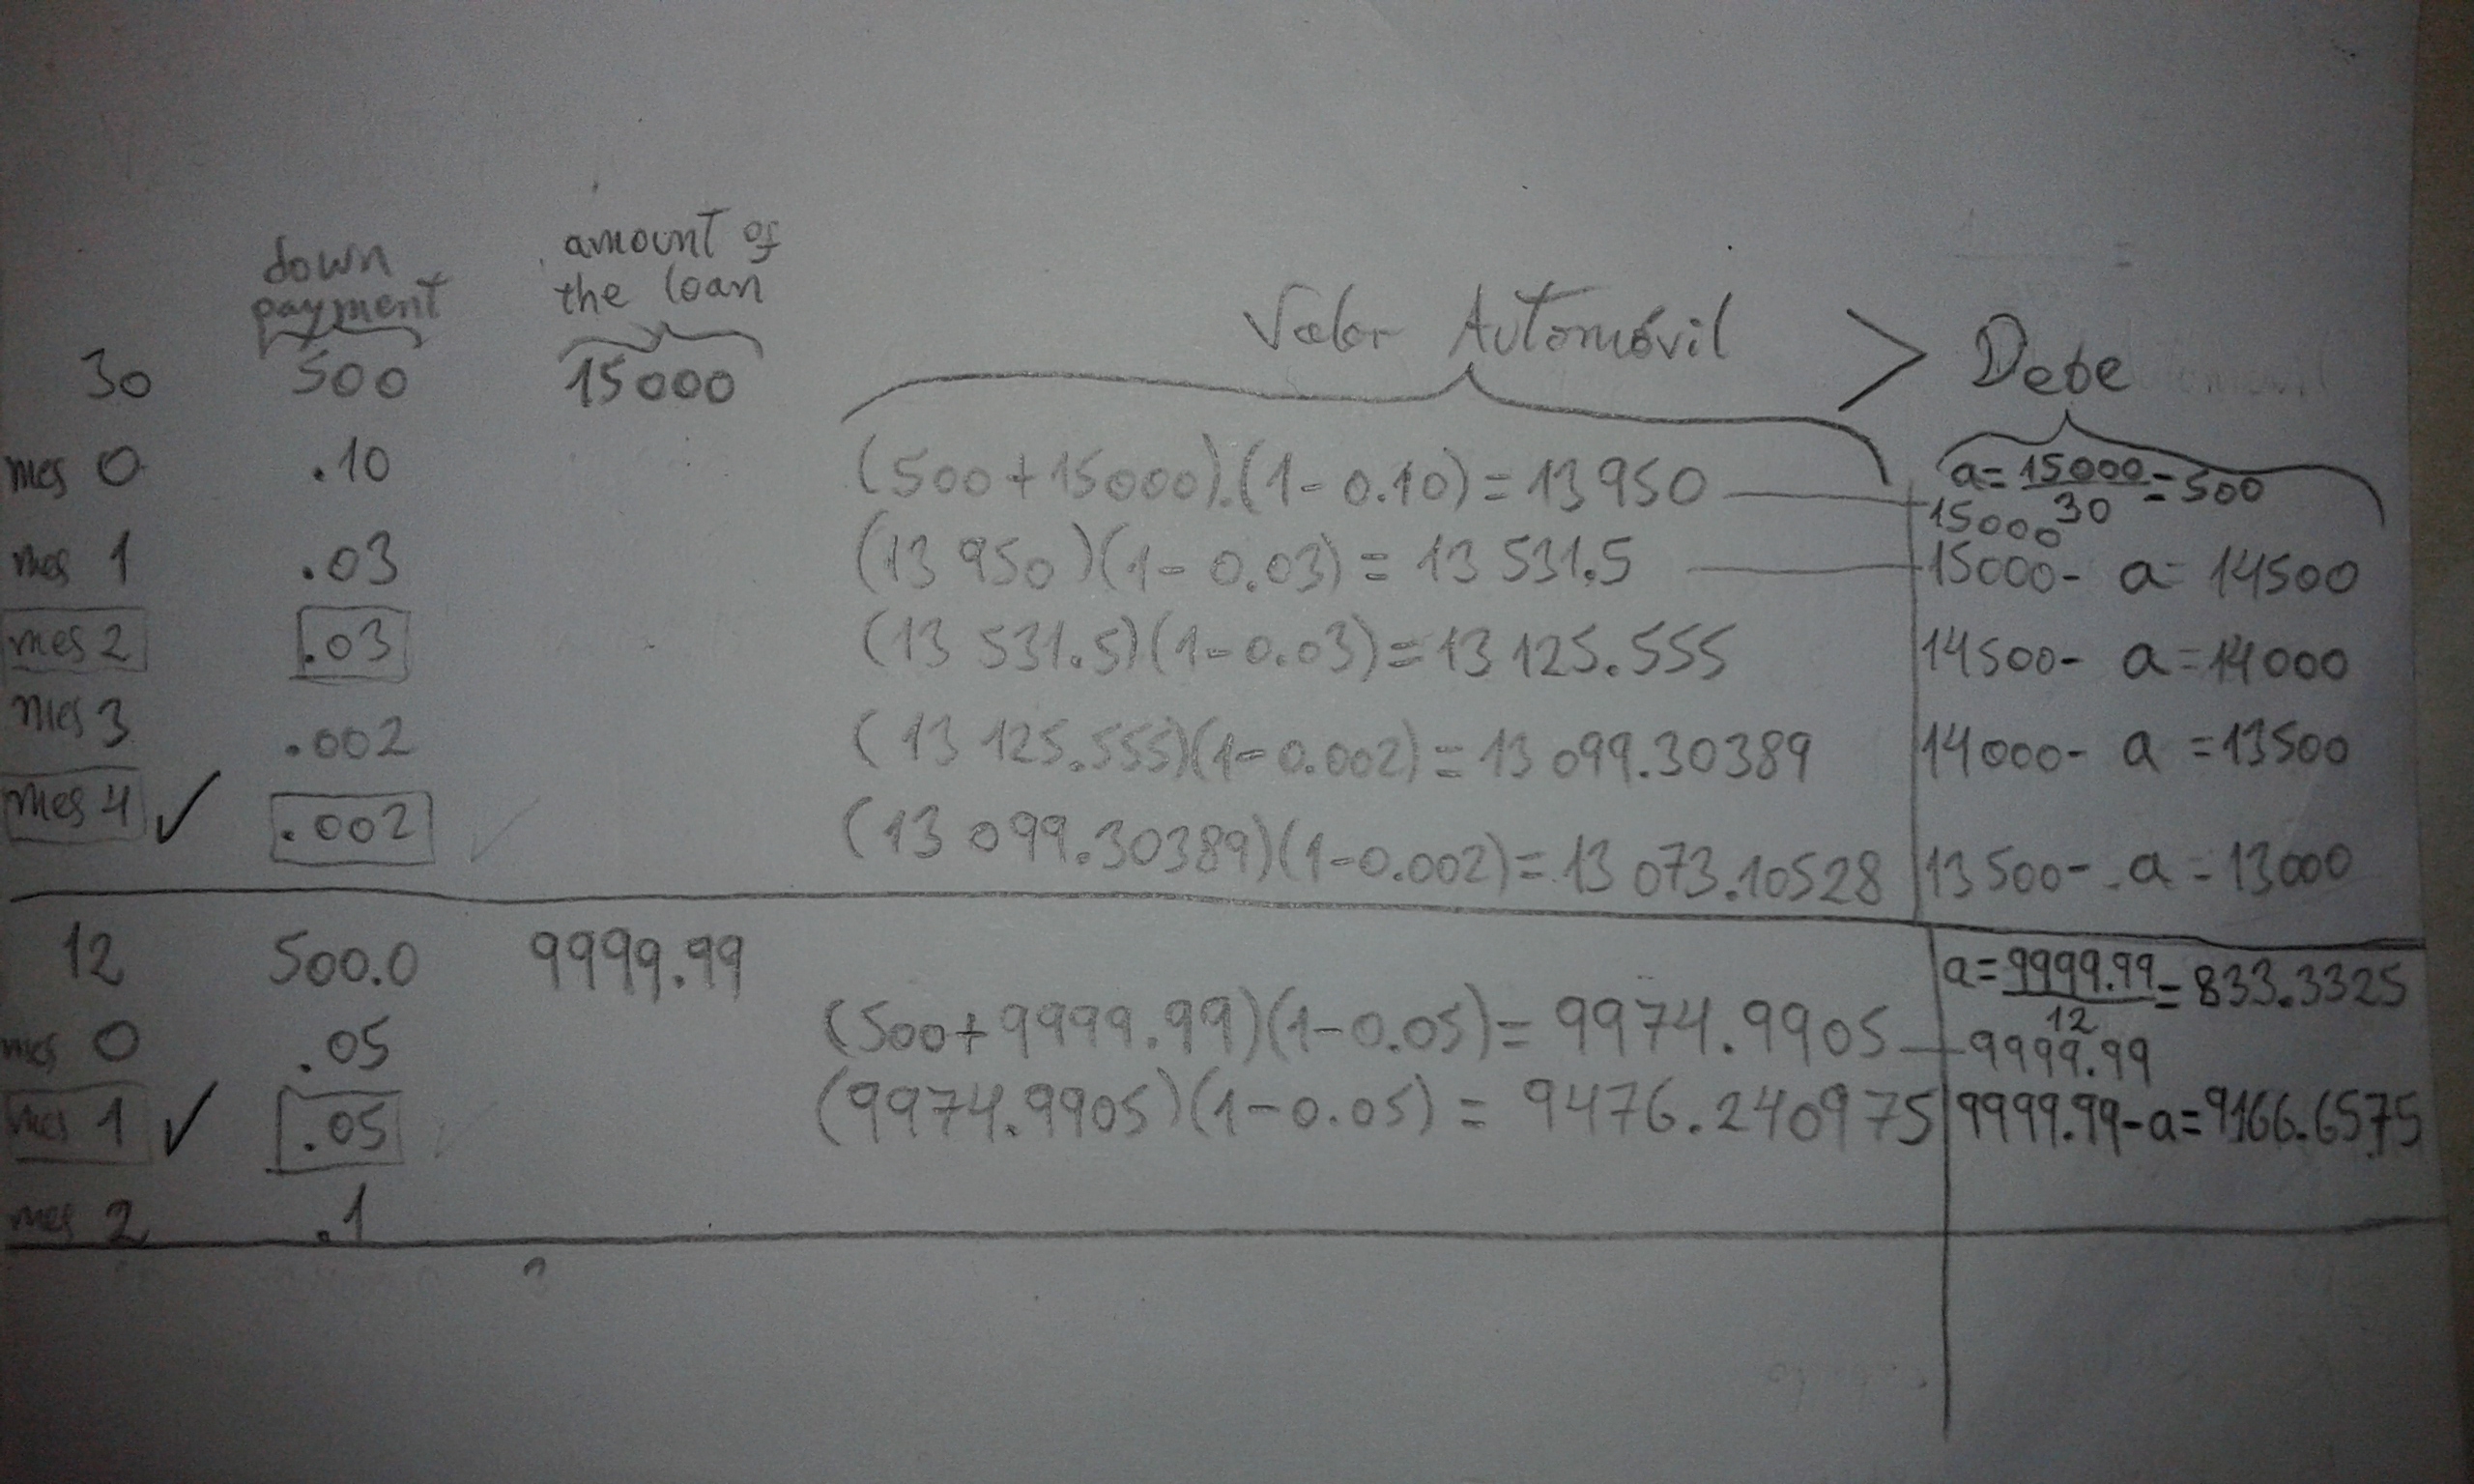 down amount of
payment the loan Valor Automóvil > Debe
30 500 15000 a = 15000 = 500
30
mes 0 .10 (500 + 15000).(1 - 0.10) = 13 950 — 15000
mes 1 .03 (13 950)(1 - 0.03) = 13 531,5 — 15000 - a = 14500
mes 2 .03 (13 531.5)(1 - 0.03) = 13 125.555 14500 - a = 14000
mes 3 .002 (13 125.555)(1 - 0.002) = 13 099.30389 14000 - a = 13500
mes 4 ✓ .002 ✓ (13 099.30389)(1 - 0.002) = 13 073.10528 13500 - a = 13000
12 500.0 9999.99 a = 9999.99 = 833.3325
12
mes 0 .05 (500 + 9999.99)(1 - 0.05) = 9974.9905 — 9999.99
mes 1 ✓ .05 ✓ (9974.9905)(1 - 0.05) = 9476.240975 9999.99 - a = 9166.6575
mes 2 .1